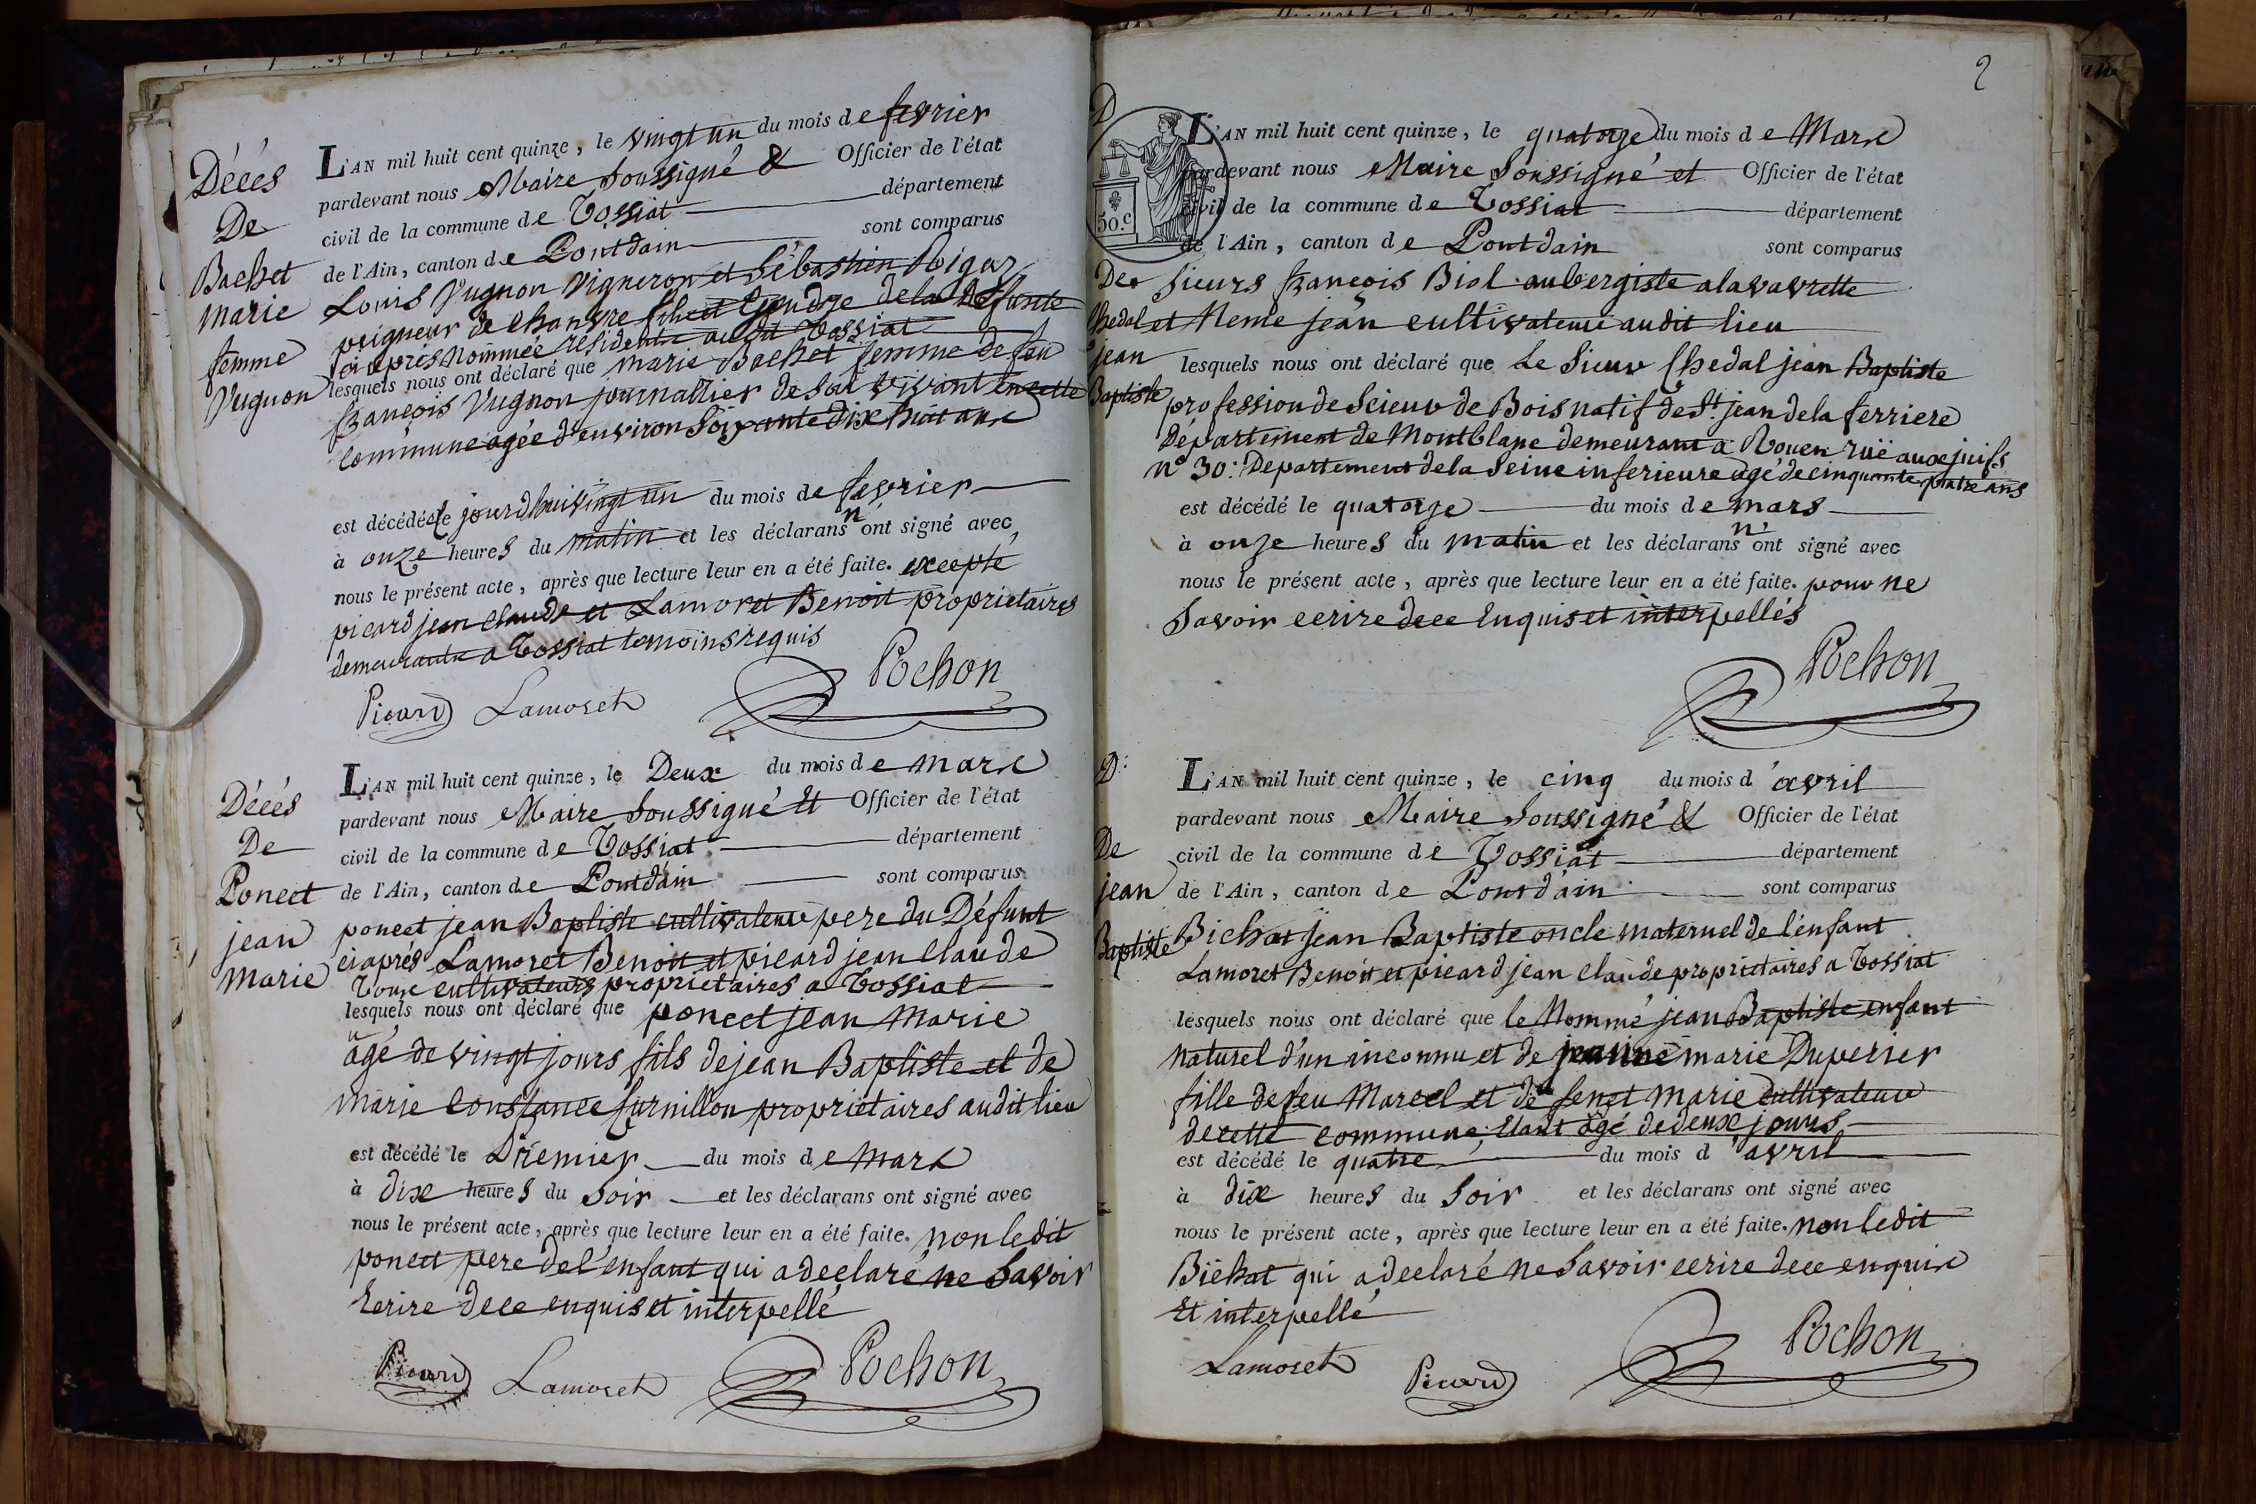 Décés
De
Bachet
Marie
femme
Vugnon
L'AN mil huit cent quinze, le vingt un du mois de fevrier
pardevant nous Maire Soussigné & Officier de l'état
civil de la commune de Tossiat département
de l'Ain, canton de Pontdain sont comparus
Louis Vugnon Vigneron et Sébastien
peigneur de chanvre fils et Gendre de la Defunte
ci après Nommée résidents audit Tossiat
lesquels nous ont déclaré que marie Bachet femme de feu
françois Vugnon journallier de son vivant en cette
commune agée d'environ Soixante dix huit ans
est décédée le jourd'hui vingt un du mois de fevrier
à onze heures du matin et les déclarans n'ont signé avec
nous le présent acte, après que lecture leur en a été faite. excepté
picard jean claude et Lamoret Benoit propriétaires
demeurants a Tossiat temoins requis
Picard Lamoret Pochon
Décés
De
Poncet
jean
Marie
L'AN mil huit cent quinze, le Deux du mois de mars
pardevant nous Maire Soussigné et Officier de l'état
civil de la commune de Tossiat département
de l'Ain, canton de Pontdain sont comparus
poncet jean Baptiste cultivateur pere du Défunt
ci après Lamoret Benoit et picard jean claude
Tous cultivateurs propriétaires a Tossiat
lesquels nous ont déclaré que poncet jean Marie
agé de vingt jours fils de jean Baptiste et de
marie Constance furnillon propriétaires audit lieu
est décédé le Premier du mois de mars
à dix heures du Soir et les déclarans ont signé avec
nous le présent acte, après que lecture leur en a été faite. non ledit
poncet pere de l'enfant qui a declaré ne Savoir
Ecrire de ce enquis et interpellé
Picard Lamoret Pochon
2
D
De
Chedal
jean
Baptiste
50.c
L'AN mil huit cent quinze, le quatorze du mois de Mars
pardevant nous Maire Soussigné et Officier de l'état
civil de la commune de Tossiat département
de l'Ain, canton de Pontdain sont comparus
Sieurs françois Biol aubergiste a la vavrette
et Neme jean cultivateur audit lieu
lesquels nous ont déclaré que Le Sieur Chedal jean Baptiste
profession de Scieur de Bois natif de St. jean de la ferriere
Département de Montblanc demeurant a Rouen ruë aux juifs
n° 30: Departement de la Seine inferieure agé de cinquante quatre ans
est décédé le quatorze du mois de mars
à onze heures du matin et les déclarans n'ont signé avec
nous le présent acte, après que lecture leur en a été faite. pour ne
Savoir ecrire de ce Enquis et interpellés
Pochon
D:
De
jean
Baptiste
L'AN mil huit cent quinze, le cinq du mois d'avril
pardevant nous Maire Soussigné & Officier de l'état
civil de la commune de Tossiat département
de l'Ain, canton de Pontdain sont comparus
Bichat jean Baptiste oncle maternel de l'enfant
Lamoret Benoit et picard jean claude propriétaires a Tossiat
lesquels nous ont déclaré que le Nommé jean Baptiste enfant
naturel d'un inconnu et de jeanne marie Duperier
fille de feu Marcel et de fenet marie cultivateur
de cette commune, Etant agé de deux jours
est décédé le quatre du mois d'avril
à dix heures du Soir et les déclarans ont signé avec
nous le présent acte, après que lecture leur en a été faite. non ledit
Bichat qui a declaré ne Savoir ecrire de ce enquis
et interpellé
Lamoret Picard Pochon